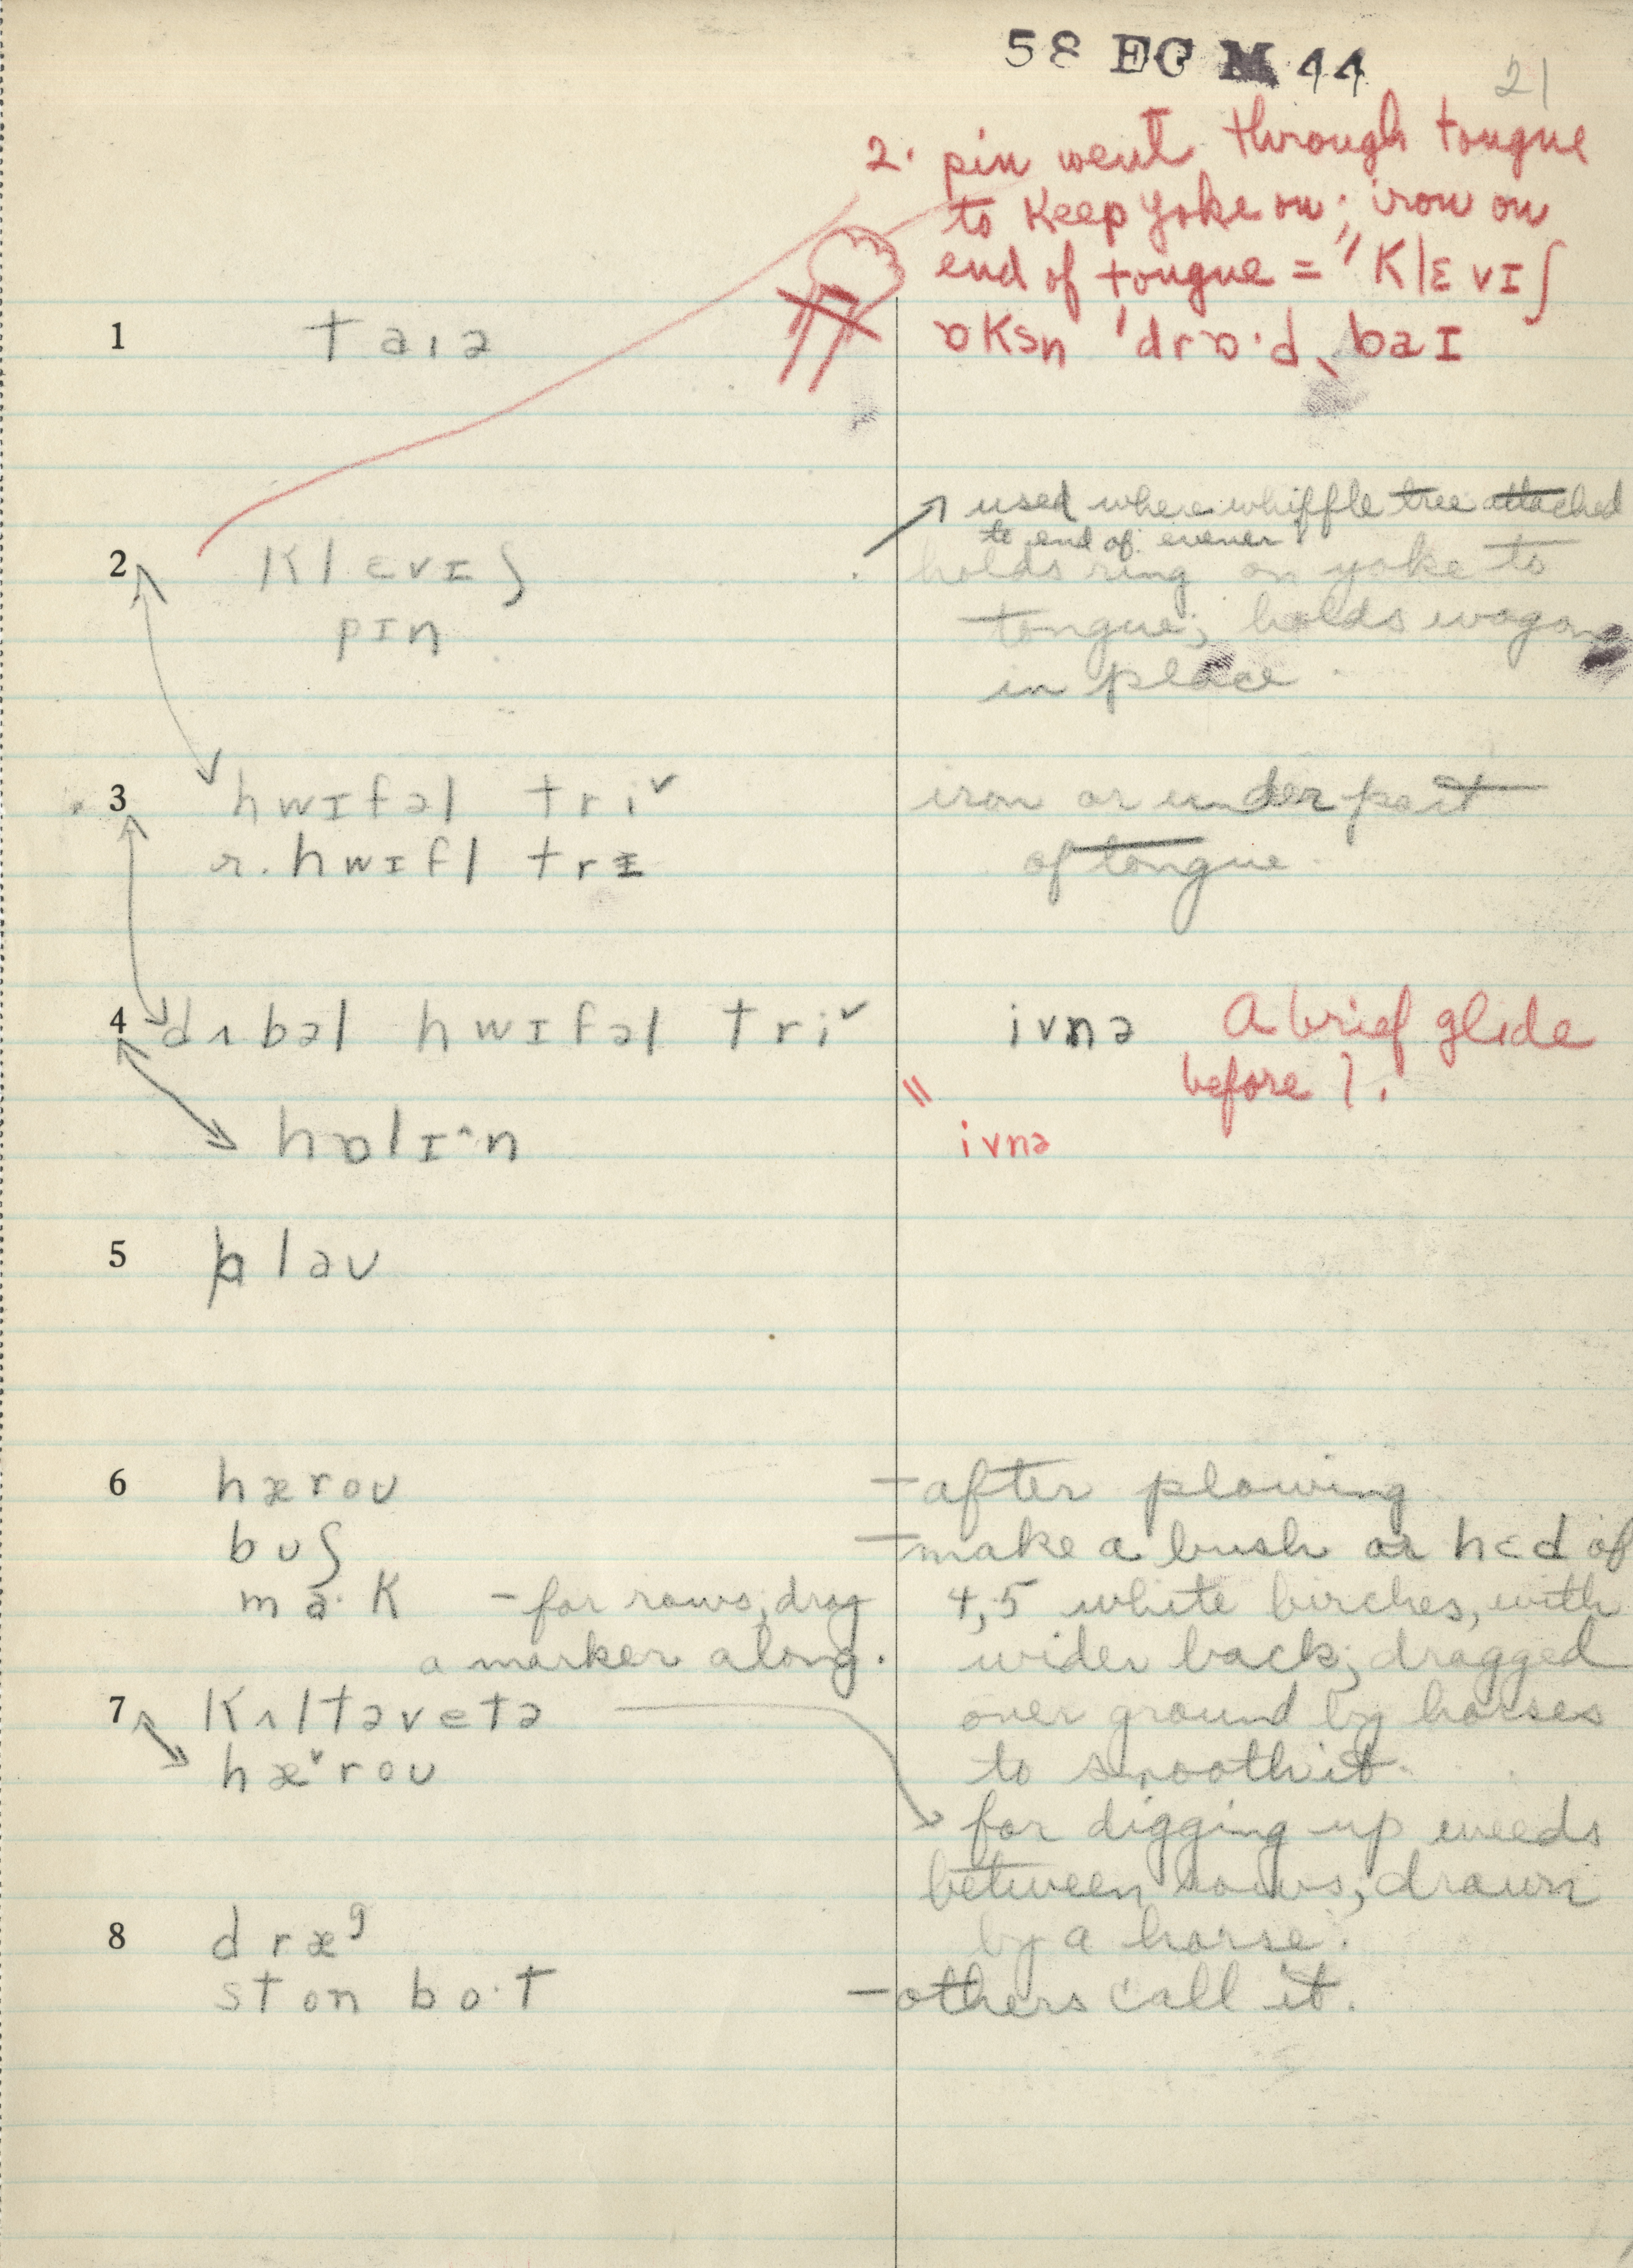 58 EC M 44
21
2. pin went through tongue
to keep yoke on; iron on
end of tongue = "klɛvɪʃ
ɒksn 'drɒ·d ˎbaɪ
1 taɪə
used where whiffle tree attached
to end of evener
2 klɛvɪʃ
pɪn
holds ring on yoke to
tongue; holds wagon
in place
3 hwɪfəl tri˅
r. hwɪfl trɪ
iron or under part
of tongue
4 dʌbəl hwɪfəl tri˅
ivnə A brief glide
before l.
hɒlɪ^n
" ivnə
5 plaʊ
6 hæroʊ
– after plowing
bʊʃ
– make a bush or hɛd of
ma·k – for rows; drag
a marker along.
4, 5 white birches, with
wider back; dragged
over ground by horses
to smooth it.
7 kʌltəvetə
hæ˅roʊ
for digging up weeds
between rows; drawn
by a horse.
8 dræg
ston bo·t
– others call it.